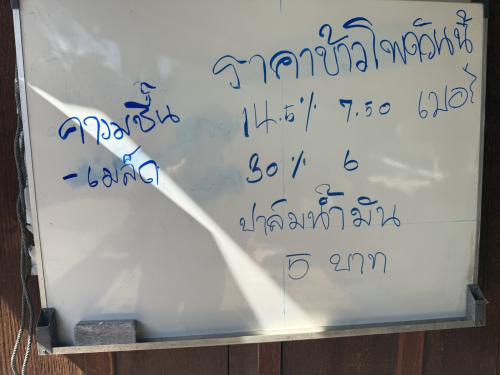 ราคาข้าวโพดวันนี้
ความชื้น 14.5% 7.50 เบอร์
-เมล็ด 30% 6
ปาล์มน้ำมัน
5 บาท